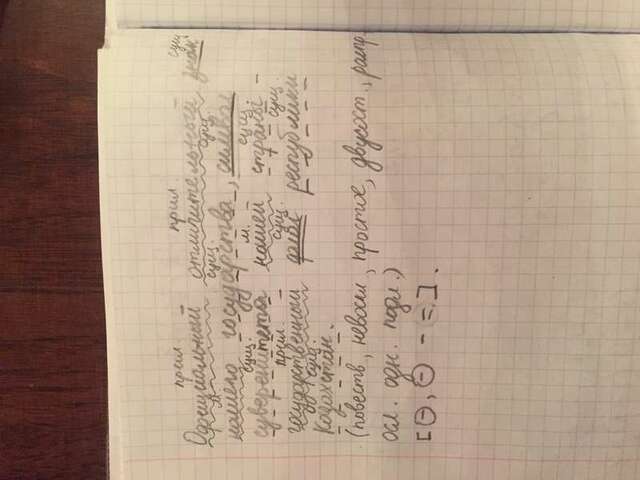 прил. прил. сущ.
Официальный отличительный знак
м. сущ. сущ.
нашего государства, символ
сущ. м. сущ.
суверенитета нашей страны -
прил. сущ. сущ.
государственный флаг республики
сущ.
Казахстан.
(повеств, невоскл, простое, двусост, распр.
осл. одн. подл.)
[⊖, ⊖ - =].